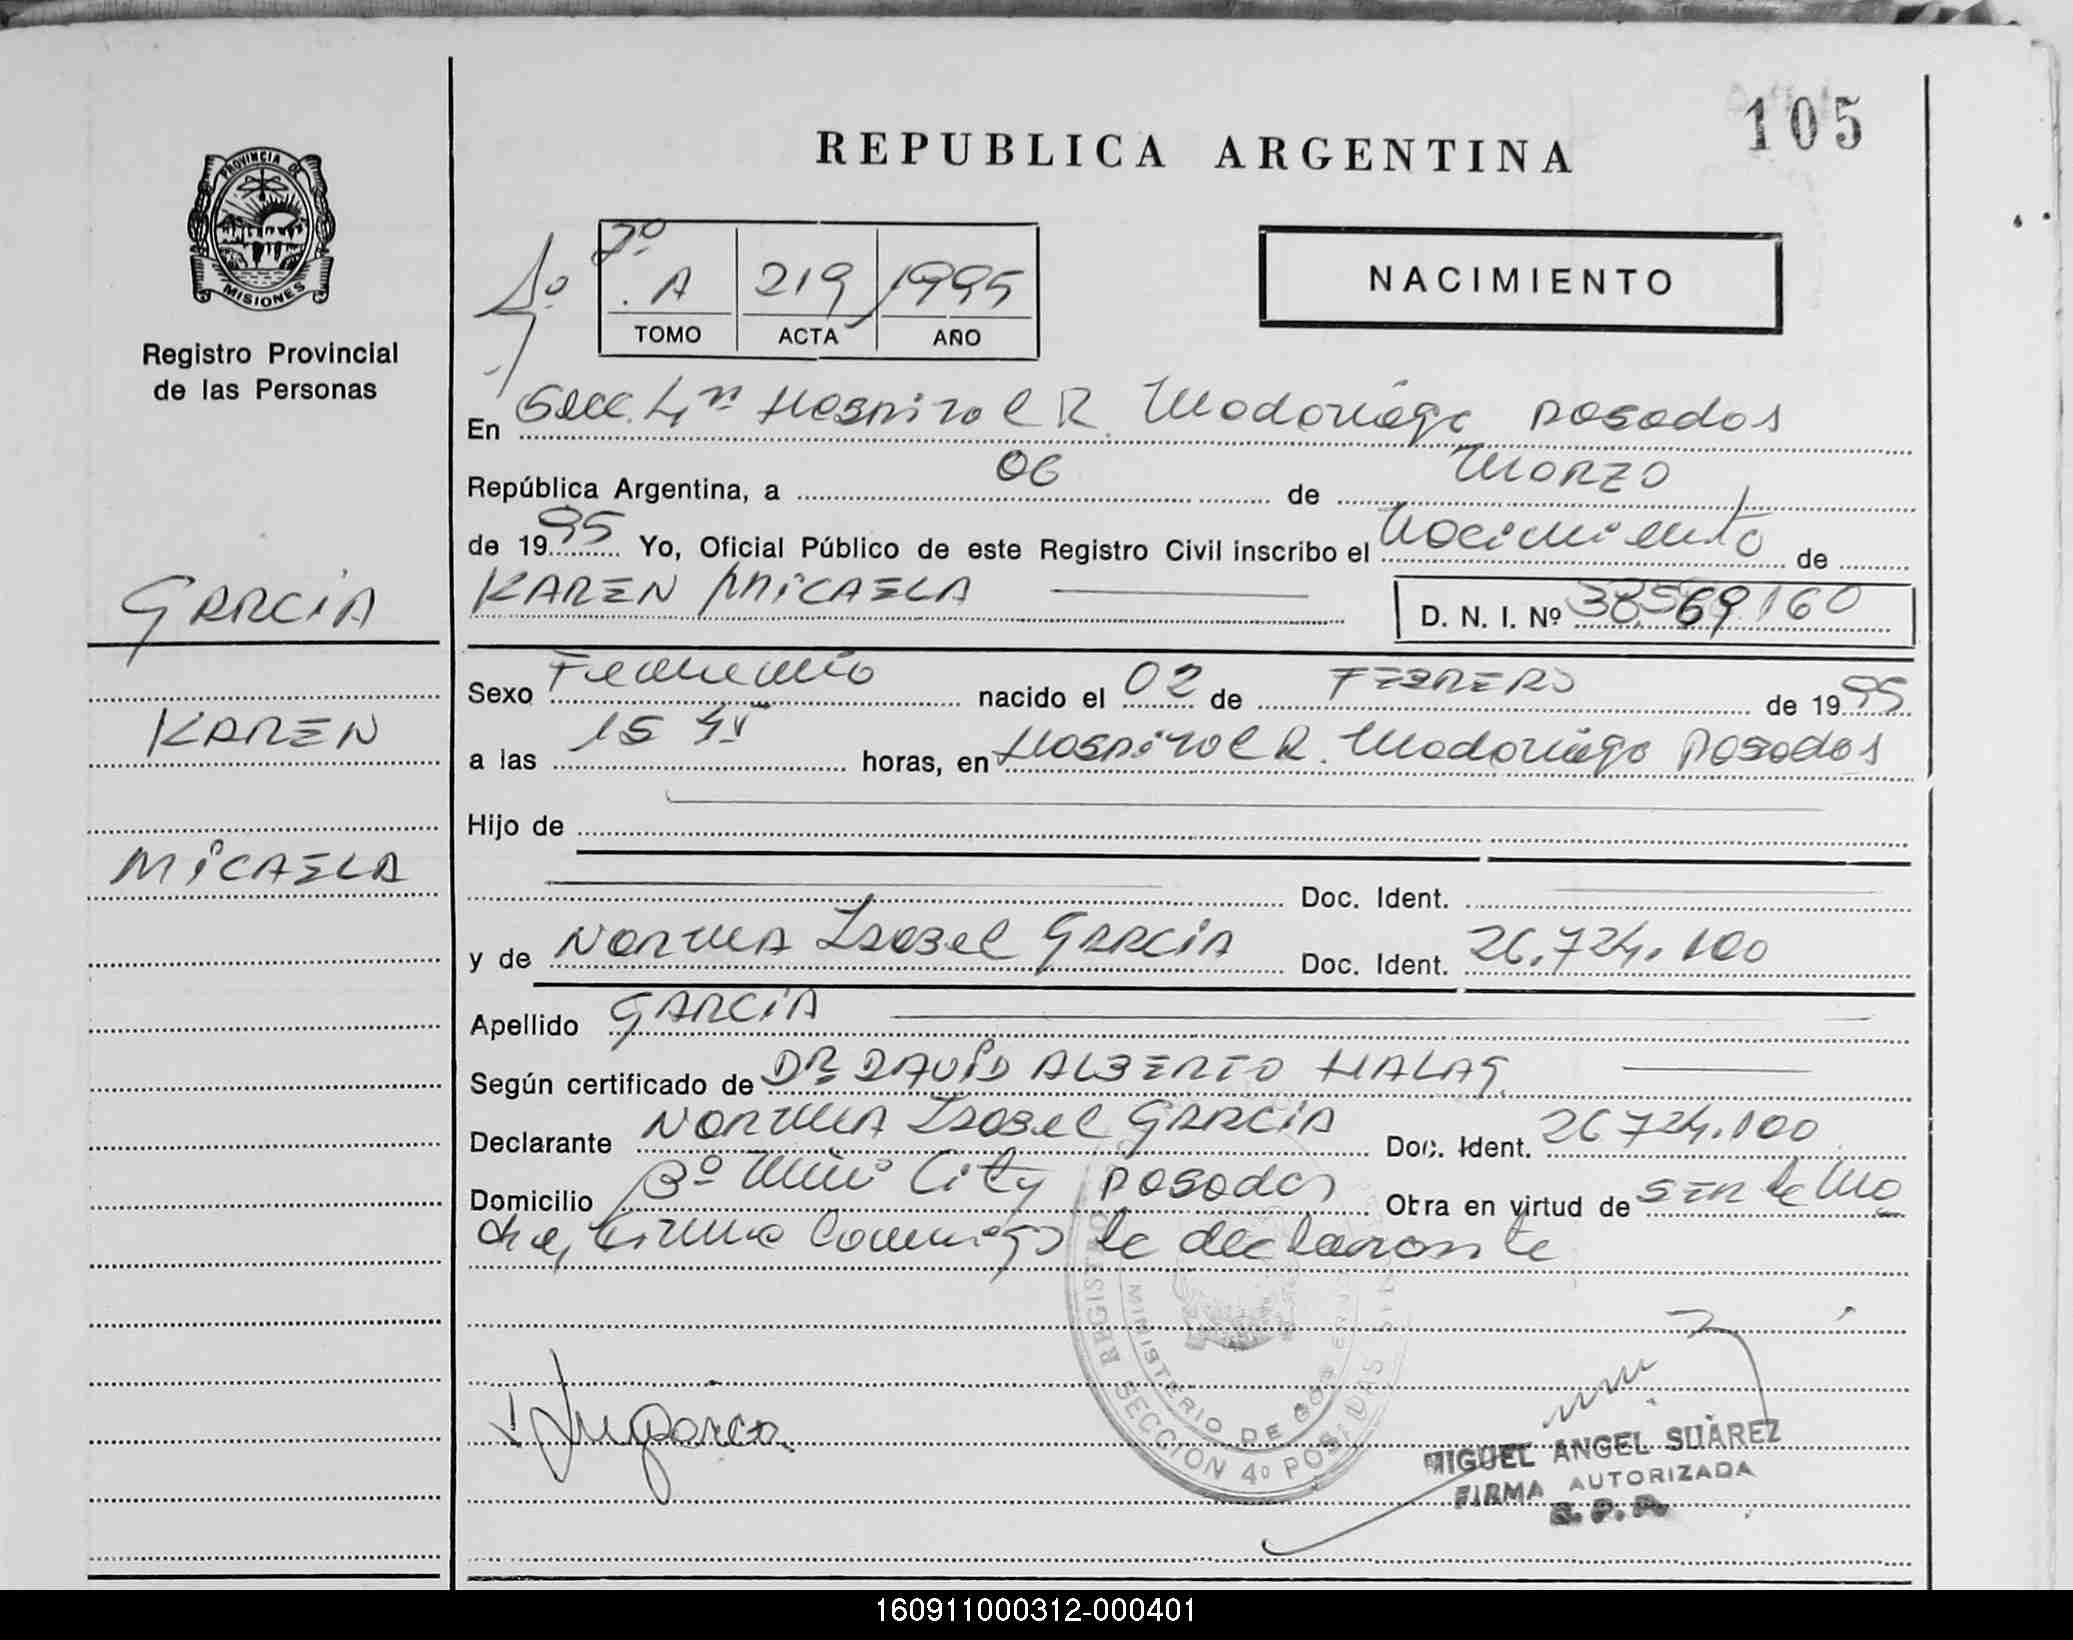 105
REPUBLICA ARGENTINA
PROVINCIA DE
MISIONES
Registro Provincial
de las Personas
7º
A 219 1995
TOMO ACTA AÑO
NACIMIENTO
En Secc. 4ª Hospital R. Madariaga Posadas
República Argentina, a 06 de Marzo
de 1995 Yo, Oficial Público de este Registro Civil inscribo el Nacimiento de
KAREN MICAELA D. N. I. Nº 38.569.160
GARCIA
KAREN
MICAELA
Sexo Femenino nacido el 02 de FEBRERO de 1995
a las 15 horas, en Hospital R. Madariaga Posadas
Hijo de
Doc. Ident.
y de NORMA Isabel GARCIA Doc. Ident. 26.724.100
Apellido GARCIA
Según certificado de DR. DAVID ALBERTO HALAG
Declarante NORMA Isabel GARCIA Doc. Ident. 26 724.100
Domicilio Bº Mini City Posadas Obra en virtud de SER la Ma
dre, firma conmigo la declarante
REGISTRO
MINISTERIO DE GOB
SECCION 4º POSADAS
MIGUEL ANGEL SUÁREZ
FIRMA AUTORIZADA
R. P. P.
160911000312-000401